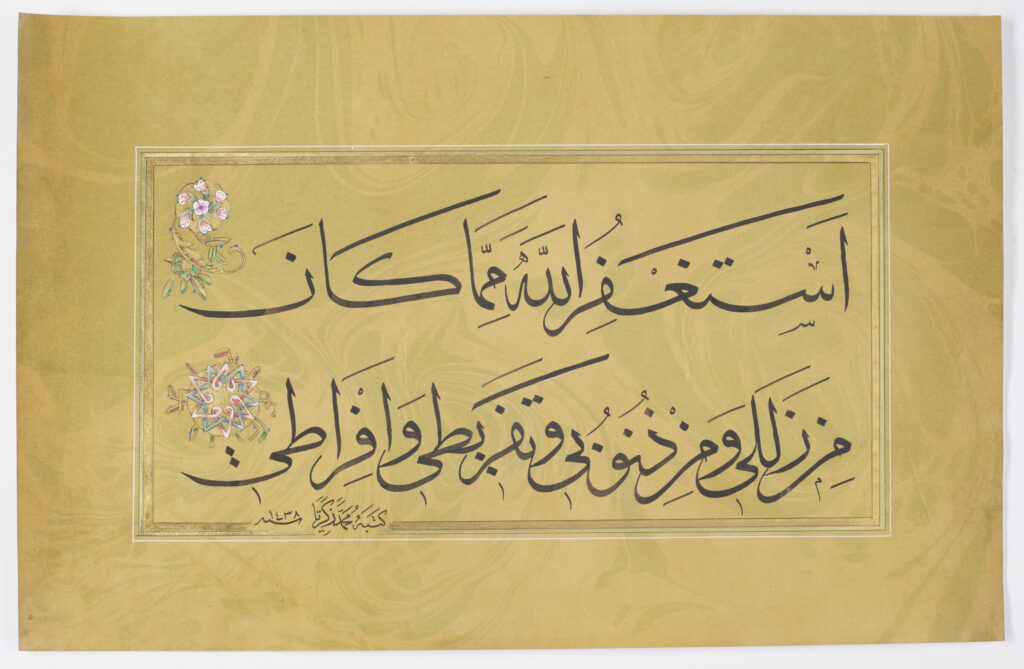 اَسْتَغْفِرُ اللّٰهَ مِمَّا كَانَ
مِن زَلَلي وَ مِن ذُنُوبي وَ تَفريطي وَ اِفْرَاطي
كتبهُ محمَّد زكريَّا سنة ١٤٣٨